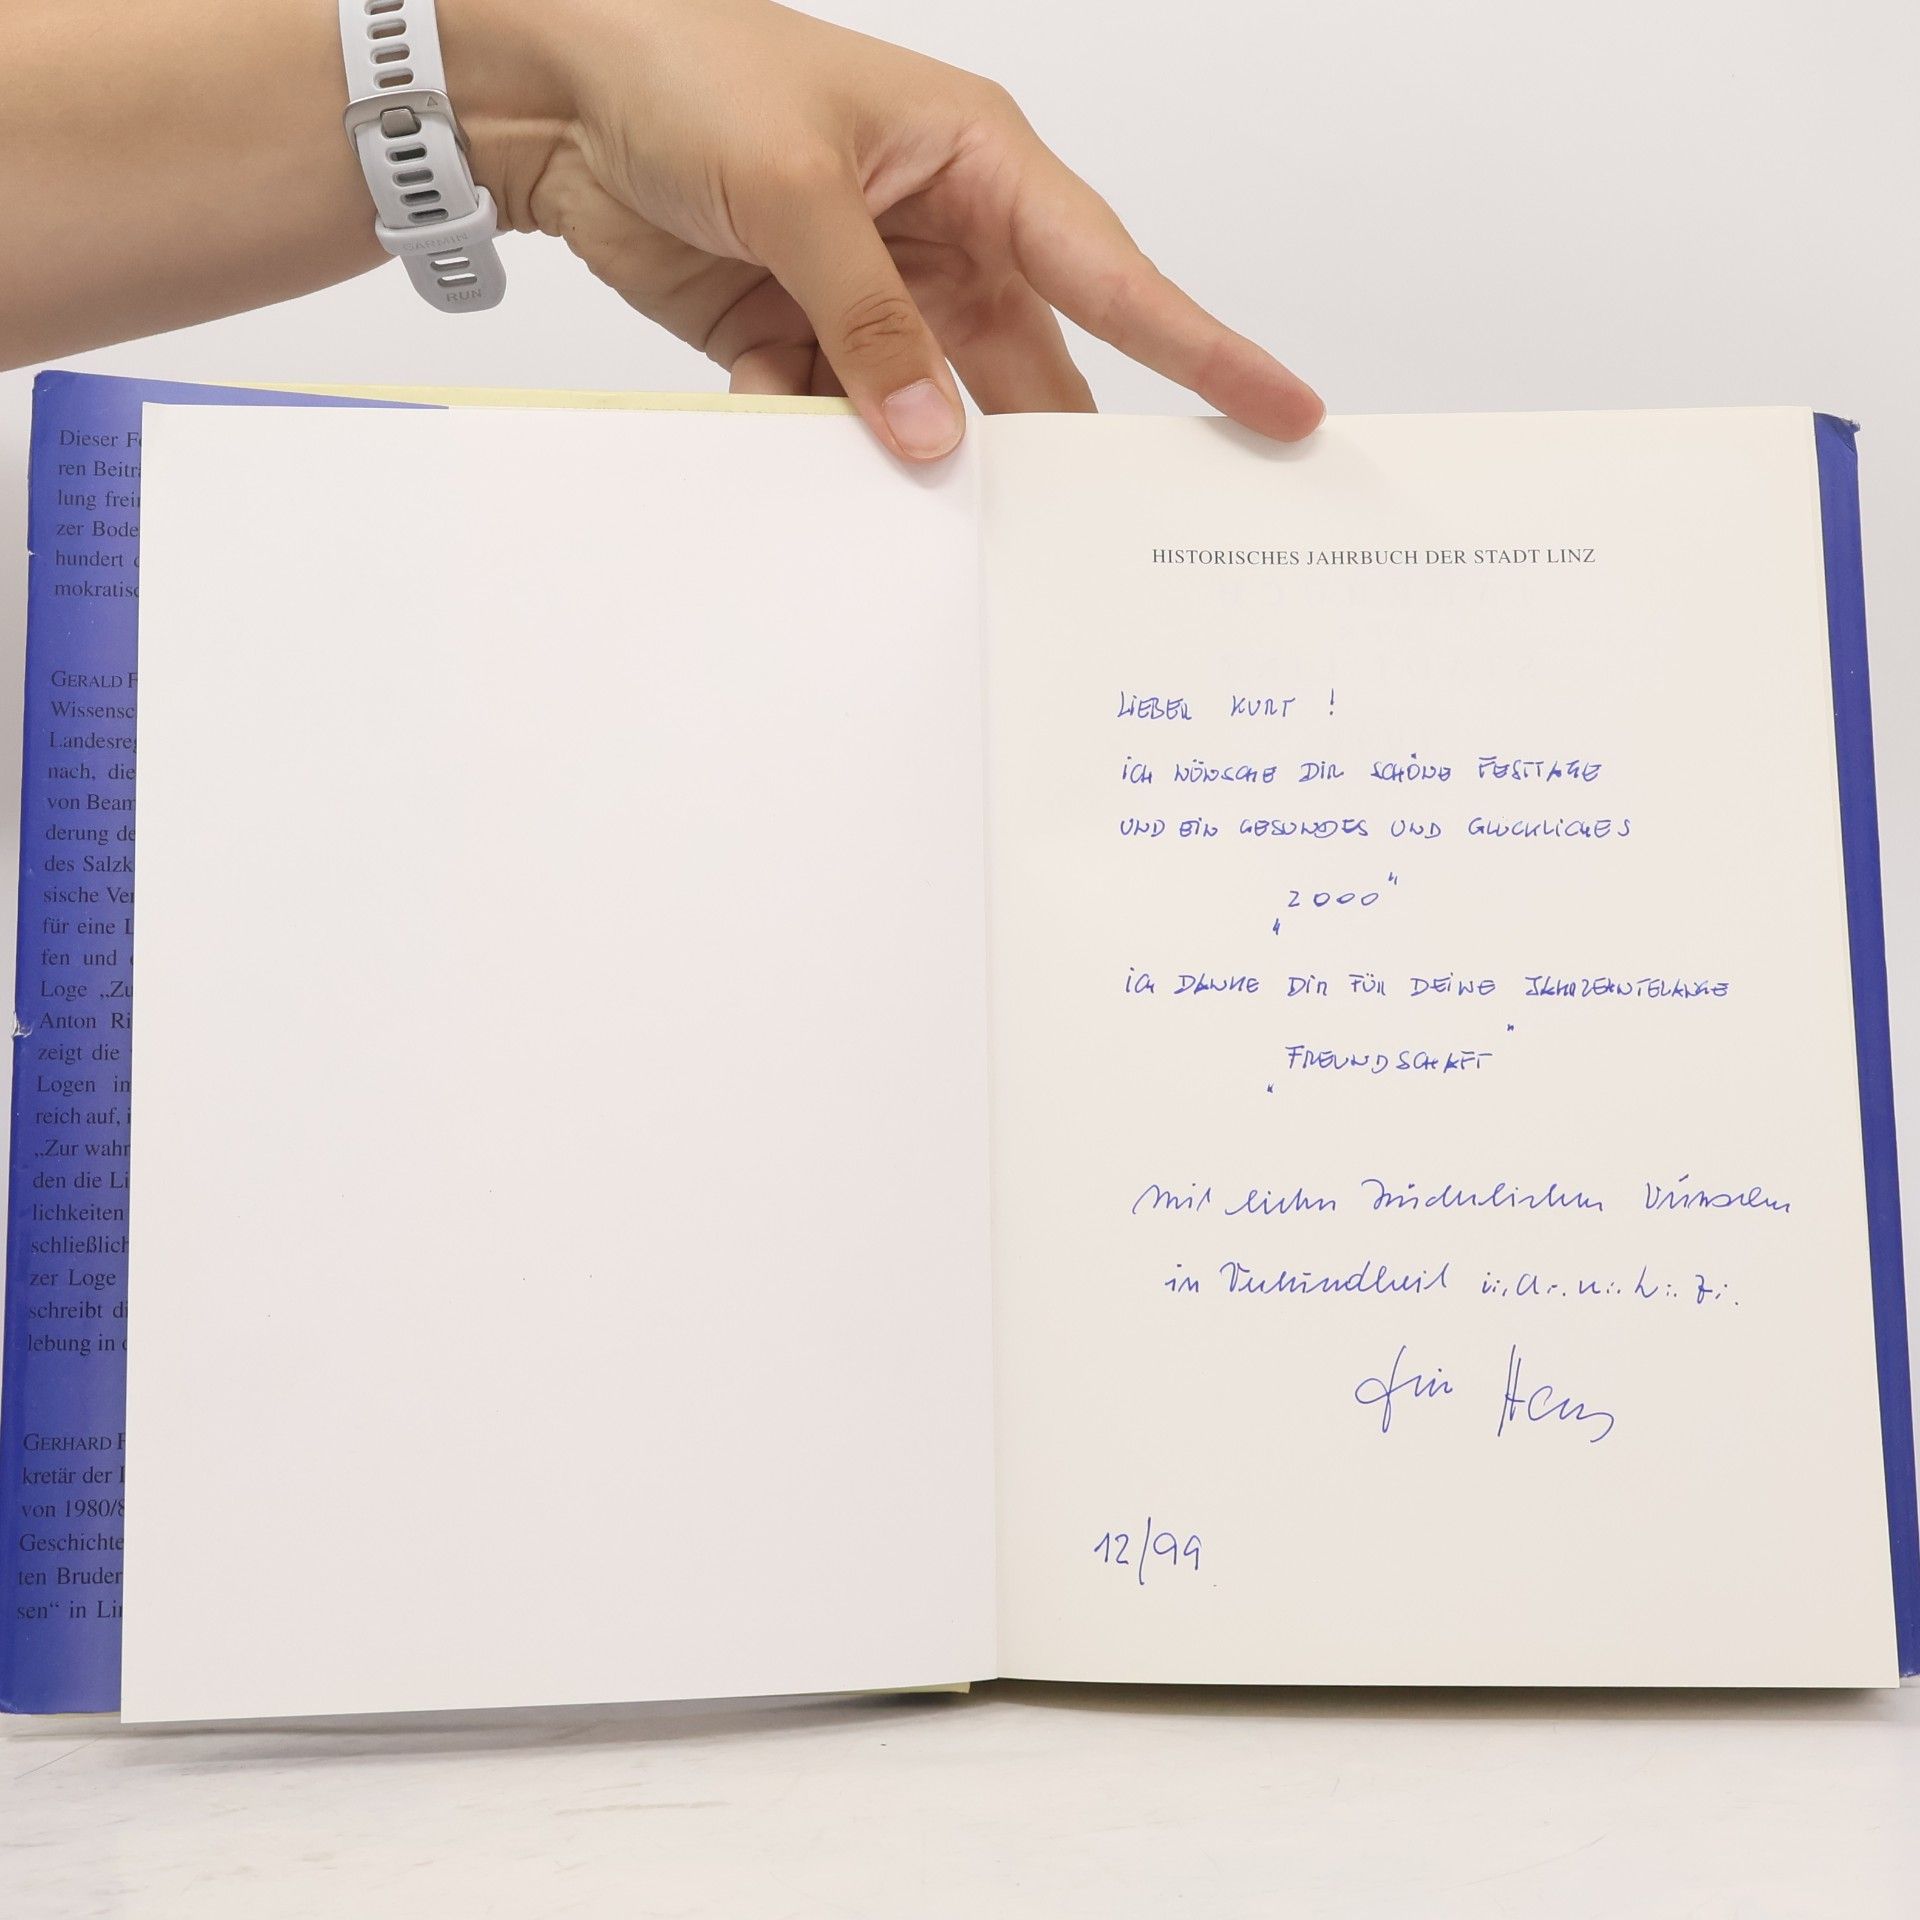 GARMIN
RUN
Dieser F
ren Beitr
lung frei
zer Bode
hundert
mokratisc
GERALD F
Wissensc
Landesreg
nach, die
von Beam
derung de
des Salzk
sische Ver
für eine L
fen und
Loge „Zu
Anton Ri
zeigt die
Logen im
reich auf, i
„Zur wahr
den die Li
lichkeiten
schließlich
zer Loge
schreibt di
lebung in d
GERHARD F
kretär der I
von 1980/8
Geschichte
ten Bruder
sen“ in Lin
HISTORISCHES JAHRBUCH DER STADT LINZ
LIEBER KURT !
ICH WÜNSCHE DIR SCHÖNE FESTTAGE
UND EIN GESUNDES UND GLÜCKLICHES
„2000“
ICH DANKE DIR FÜR DEINE JAHRZEHNTELANGE
„FREUNDSCHAFT“
Mit lieben brüderlichen Wünschen
in Verbundheit i:. d:. u:. h:. Z:.
Dein Hans
12/99